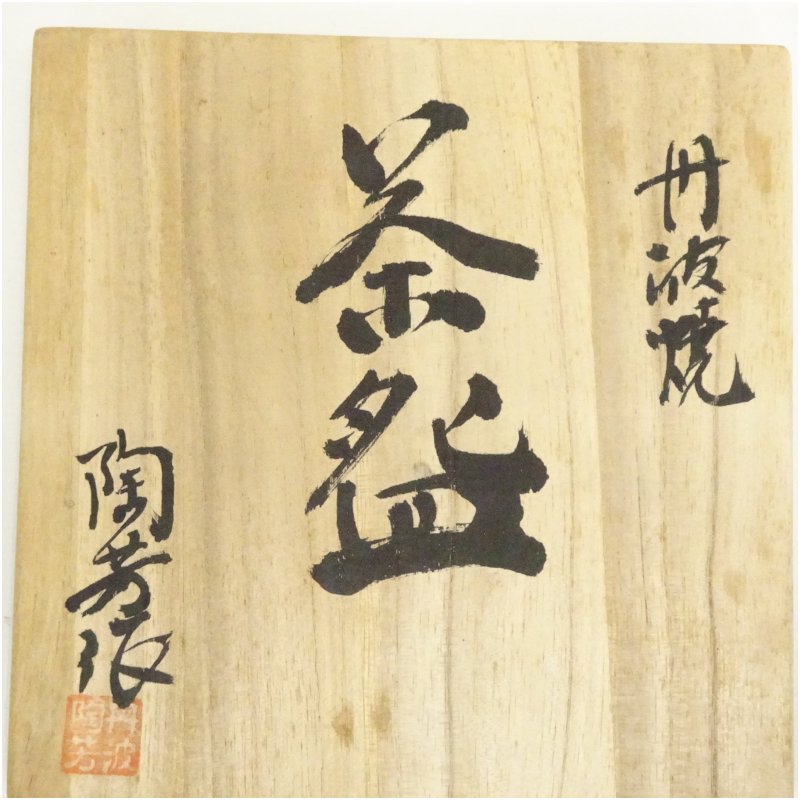 丹波焼
茶盌
陶芳作
丹波
陶芳